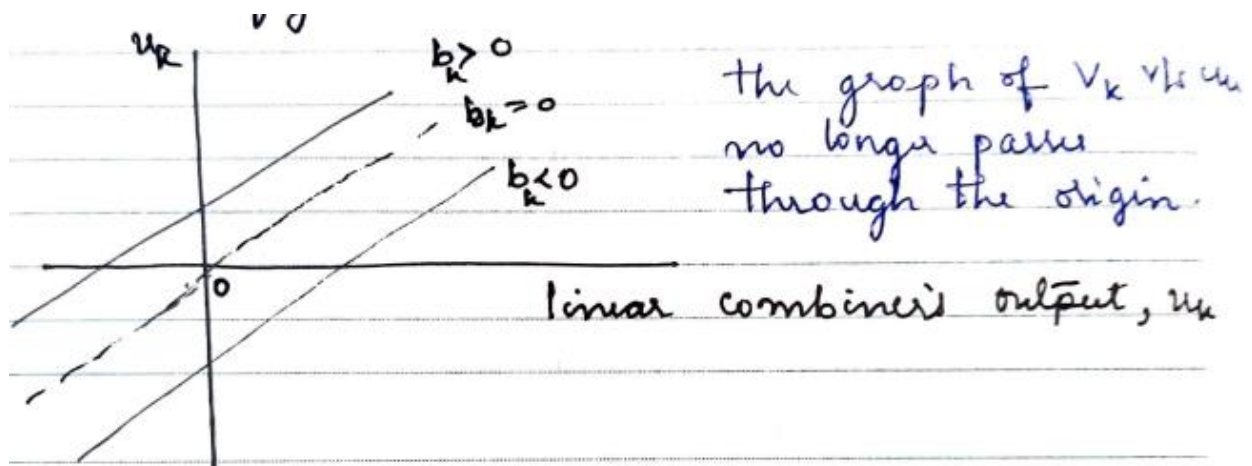 u_k
b_k > 0
b_k = 0
b_k < 0
the graph of V_k v/s u_k
no longer passes
through the origin.
0
linear combiner's output, u_k